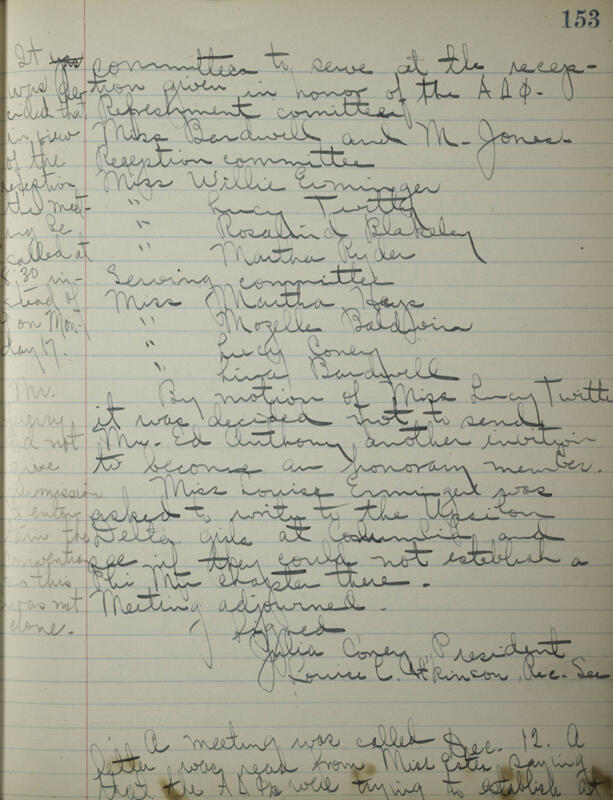 153
committees to serve at the recep-
tion given in honor of the A Δ Φ.
Refreshment comittee
Miss Bardwell and M. Jones.
Reception committee
Miss Willie Erminger
" Lucy Twitty
" Rosalind Blakeley
" Martha Ryder
Serving committee
Miss Martha Hays
" Mozelle Baldwin
" Lucy Coney
" Bardwell
By motion of Miss Lucy Twitte
it was decided not to send
Mr. Ed Anthony another
to become an honorary member.
Miss Louise Erminger was
asked to write to the Upsilon
Delta girls at Columbia and
see if they could not establish a
Phi Mu chapter there.
Meeting adjourned.
Signed
Julia Coney, President
Louise C. Atkinson, Rec. Sec
A meeting was called Dec. 12. A
letter was read from Miss Ester saying
that the A Δ Φs were trying to establish at
It
was de-
cided that
in view
of the
reception
the meet-
ing be
called at
8:30 in-
stead of
on Mon-
day 17.
Mr.
did not
give
permission
to enter-
tain the
convention
so this
was not
done.